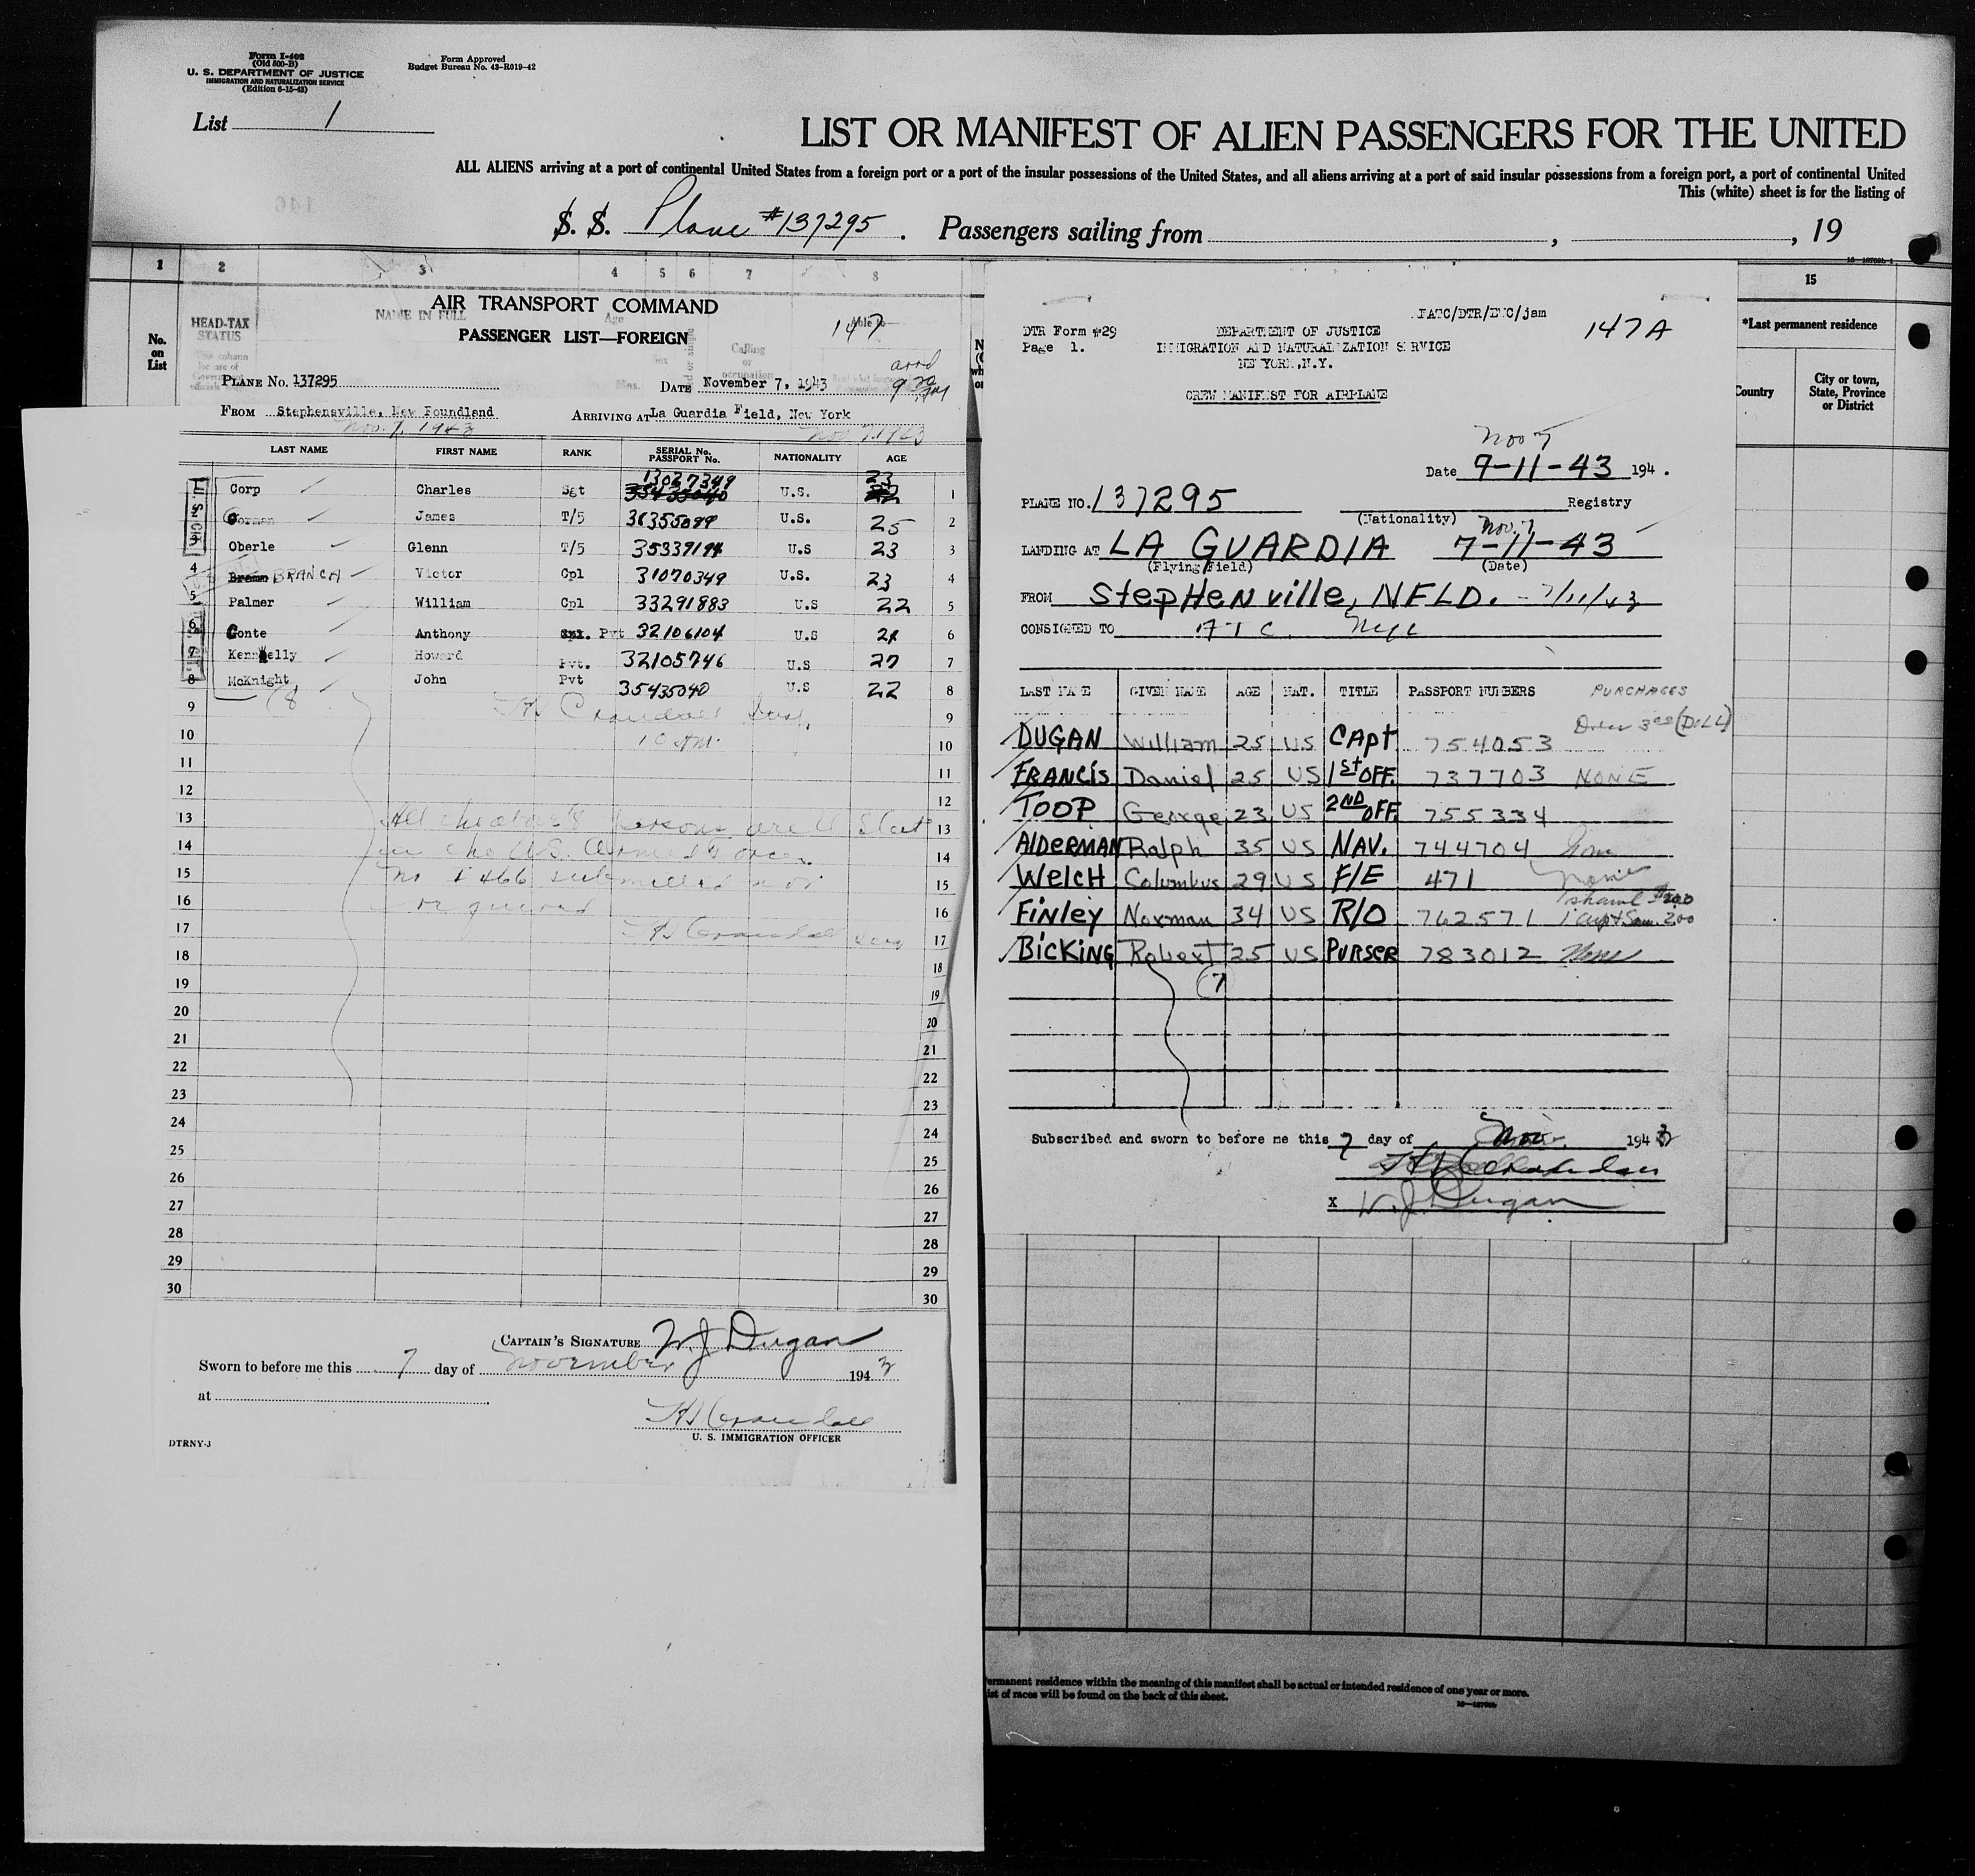 Form I-402
(Old 500-B)
U. S. DEPARTMENT OF JUSTICE
IMMIGRATION AND NATURALIZATION SERVICE
(Edition 6-15-43)
Form Approved
Budget Bureau No. 43-R019-42
List 1
LIST OR MANIFEST OF ALIEN PASSENGERS FOR THE UNITED
ALL ALIENS arriving at a port of continental United States from a foreign port or a port of the insular possessions of the United States, and all aliens arriving at a port of said insular possessions from a foreign port, a port of continental United
This (white) sheet is for the listing of
S. S. Plane #137295. Passengers sailing from , , 19
1 2 3 4 5 6 7 8
No. on List
HEAD-TAX STATUS
NAME IN FULL
Age
Calling or occupation
Able to
AIR TRANSPORT COMMAND
PASSENGER LIST—FOREIGN
147
PLANE NO. 137295 DATE November 7, 1943
FROM Stephensville, New Foundland ARRIVING AT La Guardia Field, New York
Nov. 7, 1943 Nov 7 1943
LAST NAME FIRST NAME RANK SERIAL No. PASSPORT No. NATIONALITY AGE
13027349 23
Corp Charles Sgt 35435040 U.S. 22 1
Gorman James T/5 36355099 U.S. 25 2
3 Oberle Glenn T/5 35339194 U.S 23 3
4 BRANCA Victor Cpl 31070349 U.S. 23 4
5 Palmer William Cpl 33291883 U.S 22 5
6 Conte Anthony Pvt 32106104 U.S 21 6
7 Kennelly Howard Pvt. 32105746 U.S 27 7
8 McKnight John Pvt 35435040 U.S 22 8
(8
9 9
10 10 AM. 10
11 11
12 12
13 All the above 8 persons are U S Cit 13
14 in the U.S. Armed Forces. 14
15 No I 466 submitted nor 15
16 required 16
17 HJ Crandall 17
18 18
19 19
20 20
21 21
22 22
23 23
24 24
25 25
26 26
27 27
28 28
29 29
30 30
CAPTAIN'S SIGNATURE W. J Dugan
Sworn to before me this 7 day of November 1943
at
HJ Crandall
U. S. IMMIGRATION OFFICER
DTRNY-3
DTR Form #29
Page 1.
DEPARTMENT OF JUSTICE
IMMIGRATION AND NATURALIZATION SERVICE
NEW YORK, N.Y.
147A
CREW MANIFEST FOR AIRPLANE
Nov 7
Date 7-11-43 194 .
PLANE NO. 137295 Registry
(Nationality)
Nov. 7
LANDING AT LA GUARDIA 7-11-43
(Flying Field) (Date)
FROM StepHenville, NFLD. - 7/11/43
CONSIGNED TO ATC. NYC
LAST NAME GIVEN NAME AGE NAT. TITLE PASSPORT NUMBERS PURCHASES
DUGAN William 25 US CAPt 754053 (DOLL)
FRANCIS Daniel 25 US 1ST OFF. 737703 NONE
TOOP George 23 US 2ND OFF 755334
AlDERMAN Ralph 35 US NAV. 744704
WElCH Columbus 29 US F/E 471 None
FiNlEy Norman 34 US R/O 762571
BicKiNG Robert 25 US PURSER 783012 None
(7
Subscribed and sworn to before me this 7 day of Nov. 1943
HJ Crandall
X W. J. Dugan
15
*Last permanent residence
Country
City or town, State, Province or District
Permanent residence within the meaning of this manifest shall be actual or intended residence of one year or more.
List of races will be found on the back of this sheet.